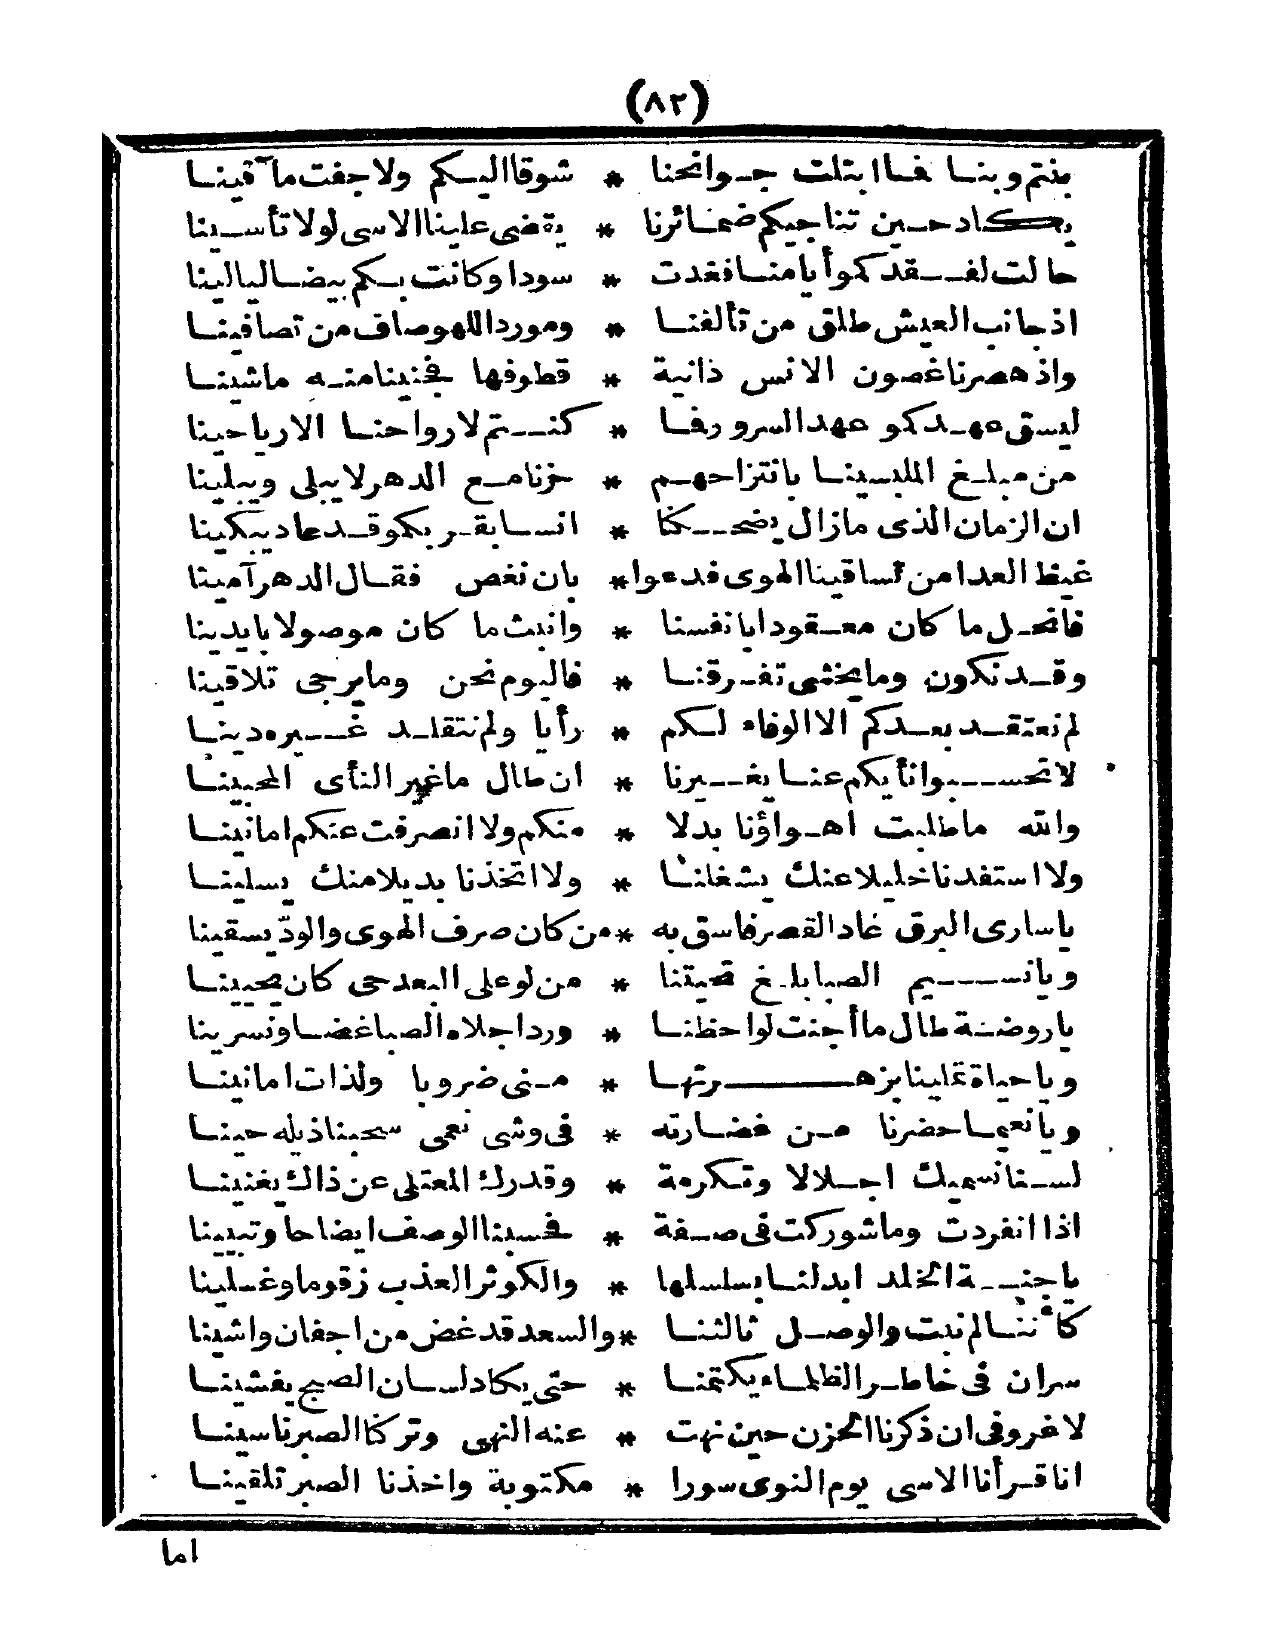 (٨٢)
بنتم وبنا فما ابتلت جوانحنا * شوقا اليكم ولا جفت مآقينا
يكاد حين تناجيكم ضمائرنا * يقضى علينا الاسى لولا تأسينا
حالت لفقدكمو أيامنا فغدت * سودا وكانت بكم بيضا ليالينا
اذ جانب العيش طلق من تألفنا * ومورد اللهو صاف من تصافينا
واذ هصرنا غصون الانس دانية * قطوفها فجنينا منه ماشينا
ليسق عهدكمو عهد السرور فما * كنتم لارواحنا الا رياحينا
من مبلغ الملبسينا بانتزاحهم * حزنا مع الدهر لا يبلى ويبلينا
ان الزمان الذى مازال يضحكنا * انسا بقربكمو قد عاد يبكينا
غيظ العدا من تساقينا الهوى فدعوا * بان نغص فقال الدهر آمينا
فانحل ما كان معقودا بانفسنا * وانبث ما كان موصولا بايدينا
وقد نكون وما يخشى تفرقنا * فاليوم نحن وما يرجى تلاقينا
لم نعتقد بعدكم الا الوفاء لكم * رأيا ولم نتقلد غيره دينا
لا تحسبوا نأيكم عنا يغيرنا * ان طال ما غير النأى المحبينا
والله ما طلبت اهواؤنا بدلا * منكم ولا انصرفت عنكم امانينا
ولا استفدنا خليلا عنك يشغلنا * ولا اتخذنا بديلا منك يسلينا
يا سارى البرق غاد القصر فاسق به * من كان صرف الهوى والودّ يسقينا
ويا نسيم الصبا بلغ تحيتنا * من لو على البعد حى كان يحيينا
يا روضة طال ما أجنت لواحظنا * وردا جلاه الصبا غضا ونسرينا
ويا حياة تملينا بزهرتها * منى ضروبا ولذات امانينا
ويا نعيما حضرنا من غضارته * فى وشى نعمى سحبنا ذيله حينا
لسنا نسميك اجلالا وتكرمة * وقدرك المعتلى عن ذاك يغنينا
اذا انفردت وما شوركت فى صفة * فحسبنا الوصف ايضاحا وتبيينا
يا جنة الخلد ابدلنا بسلسلها * والكوثر العذب زقوما وغسلينا
كأننا لم نبت والوصل ثالثنا * والسعد قد غض من اجفان واشينا
سران فى خاطر الظلماء يكتمنا * حتى يكاد لسان الصبح يفشينا
لا غرو فى ان ذكرنا الحزن حين نهت * عنه النهى وتركنا الصبر ناسينا
انا قرأنا الاسى يوم النوى سورا * مكتوبة واخذنا الصبر تلقينا
اما